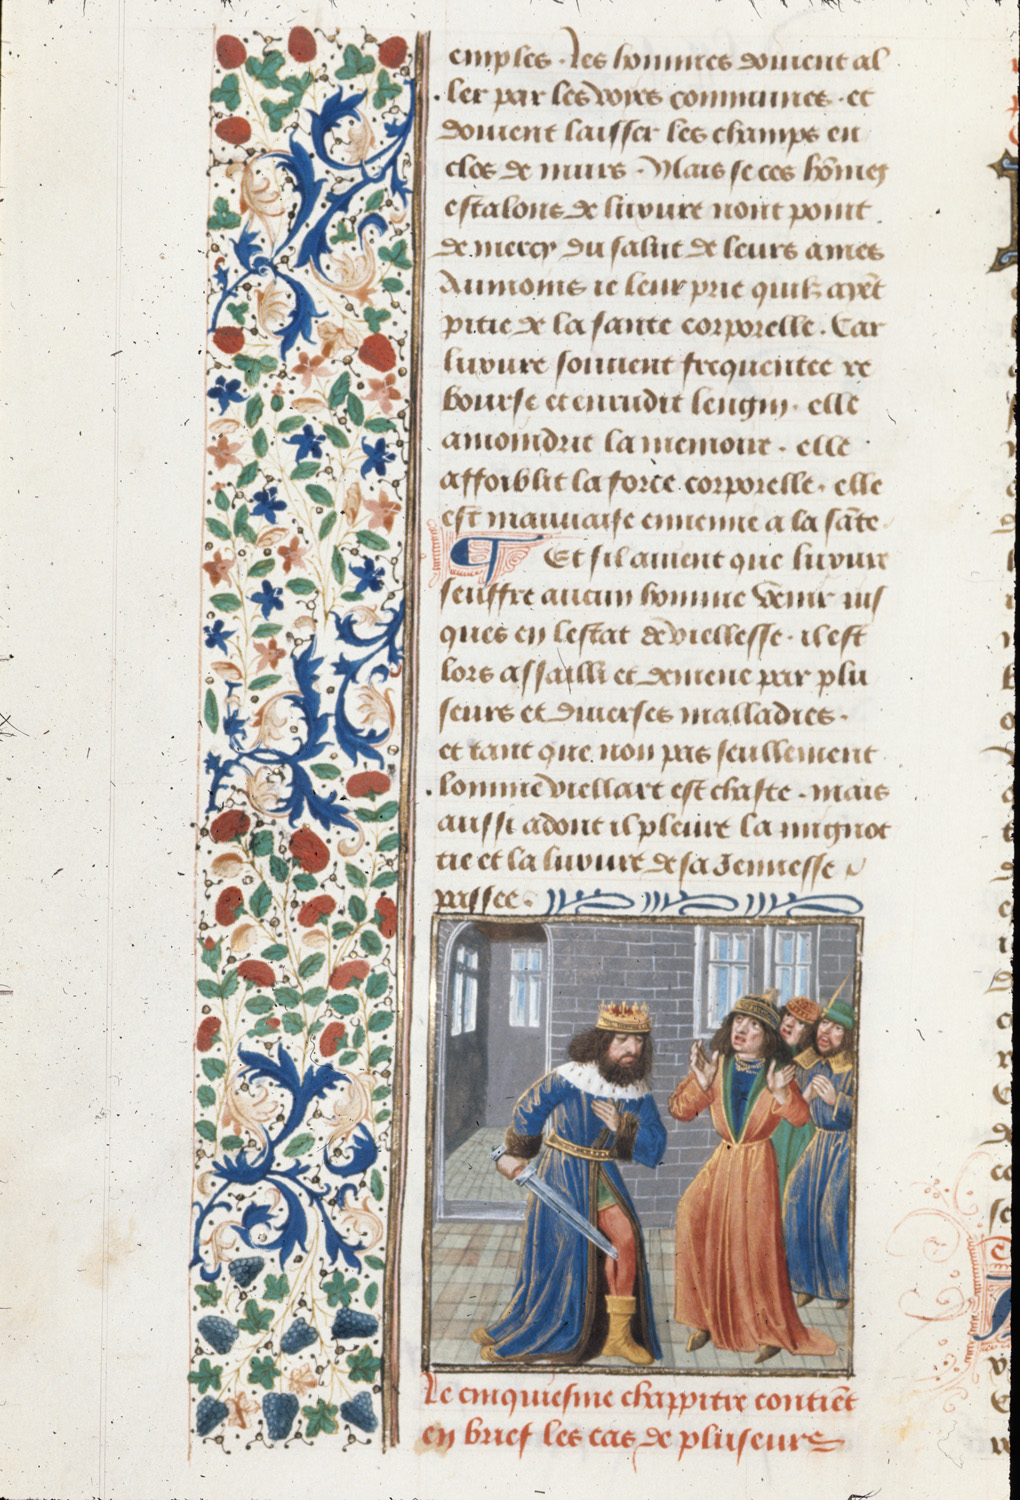 emples. Les hommes doiuent al
ler par les voyes communes. et
doiuent laisser les champs en
clos de murs. Mais se ces hõmes
estalons de luxure nont point
de mercy du salut de leurs ames
Aumoins ie leur prie quilz ayẽt
pitie de la sante corporelle. Car
luxure souuent frequentee re
bourse et enrudit lengin. elle
amoindrit la memoire. elle
affoiblit la force corporelle. elle
est mauuaise ennemie a la sãte
Et sil auient que luxure
seuffre aucun homme venir ius
ques en lestat de viellesse. il est
lors assailli et demene par plu
seurs et diuerses malladies.
et tant que non pas seullement
lomme viellart est chaste. mais
aussi adont il pleure la mignot
tie et la luxure de sa Jennesse
passee.
Le cinquiesme chappitre contiẽt
en brief les cas de pluseurs